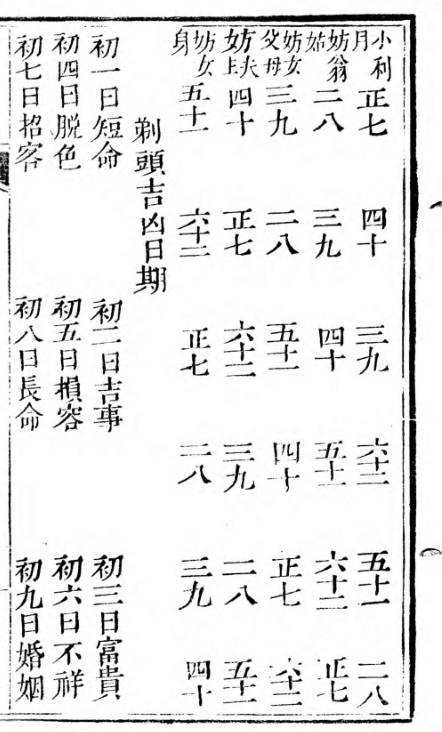 小利月 正七 四十 三九 六十二 五十一 二八
妨翁姑 二八 三九 四十 五十一 六十二 正七
妨女父母 三九 二八 五十一 四十 正七 六十二
妨夫主 四十 正七 六十二 三九 二八 五十一
妨女身 五十一 六十二 正七 二八 三九 四十
剃頭吉凶日期
初一日短命 初二日吉事 初三日富貴
初四日脫色 初五日損容 初六日不祥
初七日招客 初八日長命 初九日婚姻